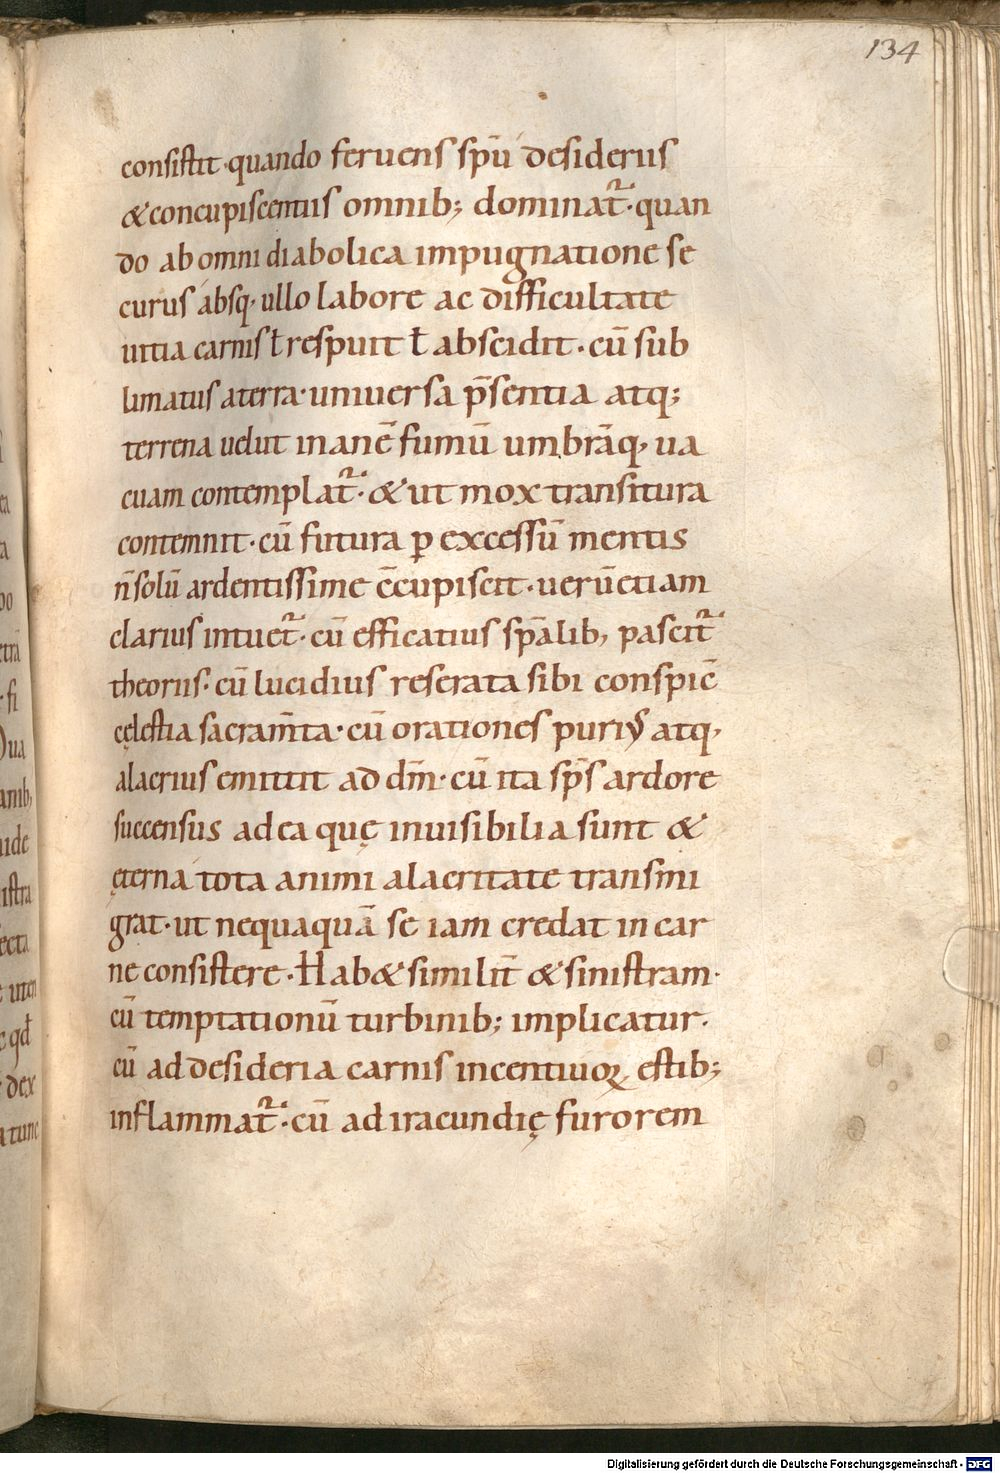 134
consistit·quando feruens spū desideriis
&concupiscentiis omnib; dominat̄·quan
do ab omni diabolica impugnatione se
curus absq· ullo labore ac difficultate
uitia carnis ł respuit ł abscidit·cū sub
limatus a terra·uniuersa p̄sentia atq;
terrena uelut inanē fumū umbrāq· ua
cuam contemplat̄·&ut mox transitura
contemnit·cū futura ꝑ excessū mentis
n̄ solū ardentissime c̄cupiscit·uerūetiam
clarius intuet̄·cū efficatius sp̄alib; pascit̄
theoriis·cū lucidius reserata sibi conspic̄
cęlestia sacram̄ta·cū orationes puriꝰ atq·
alacrius emittit ad dm̄·cū ita sp̄s ardore
succensus ad ea quę inuisibilia sunt &
ęterna tota animi alacritate transmi
grat·ut nequaquā se iam credat in car
ne consistere·Hab& similit̄ &sinistram·
cū temptationū turbinib; implicatur·
cū ad desideria carnis incentiuoꝝ estib;
inflammat̄·cū ad iracundię furorem
Digitalisierung gefördert durch die Deutsche Forschungsgemeinschaft - DFG